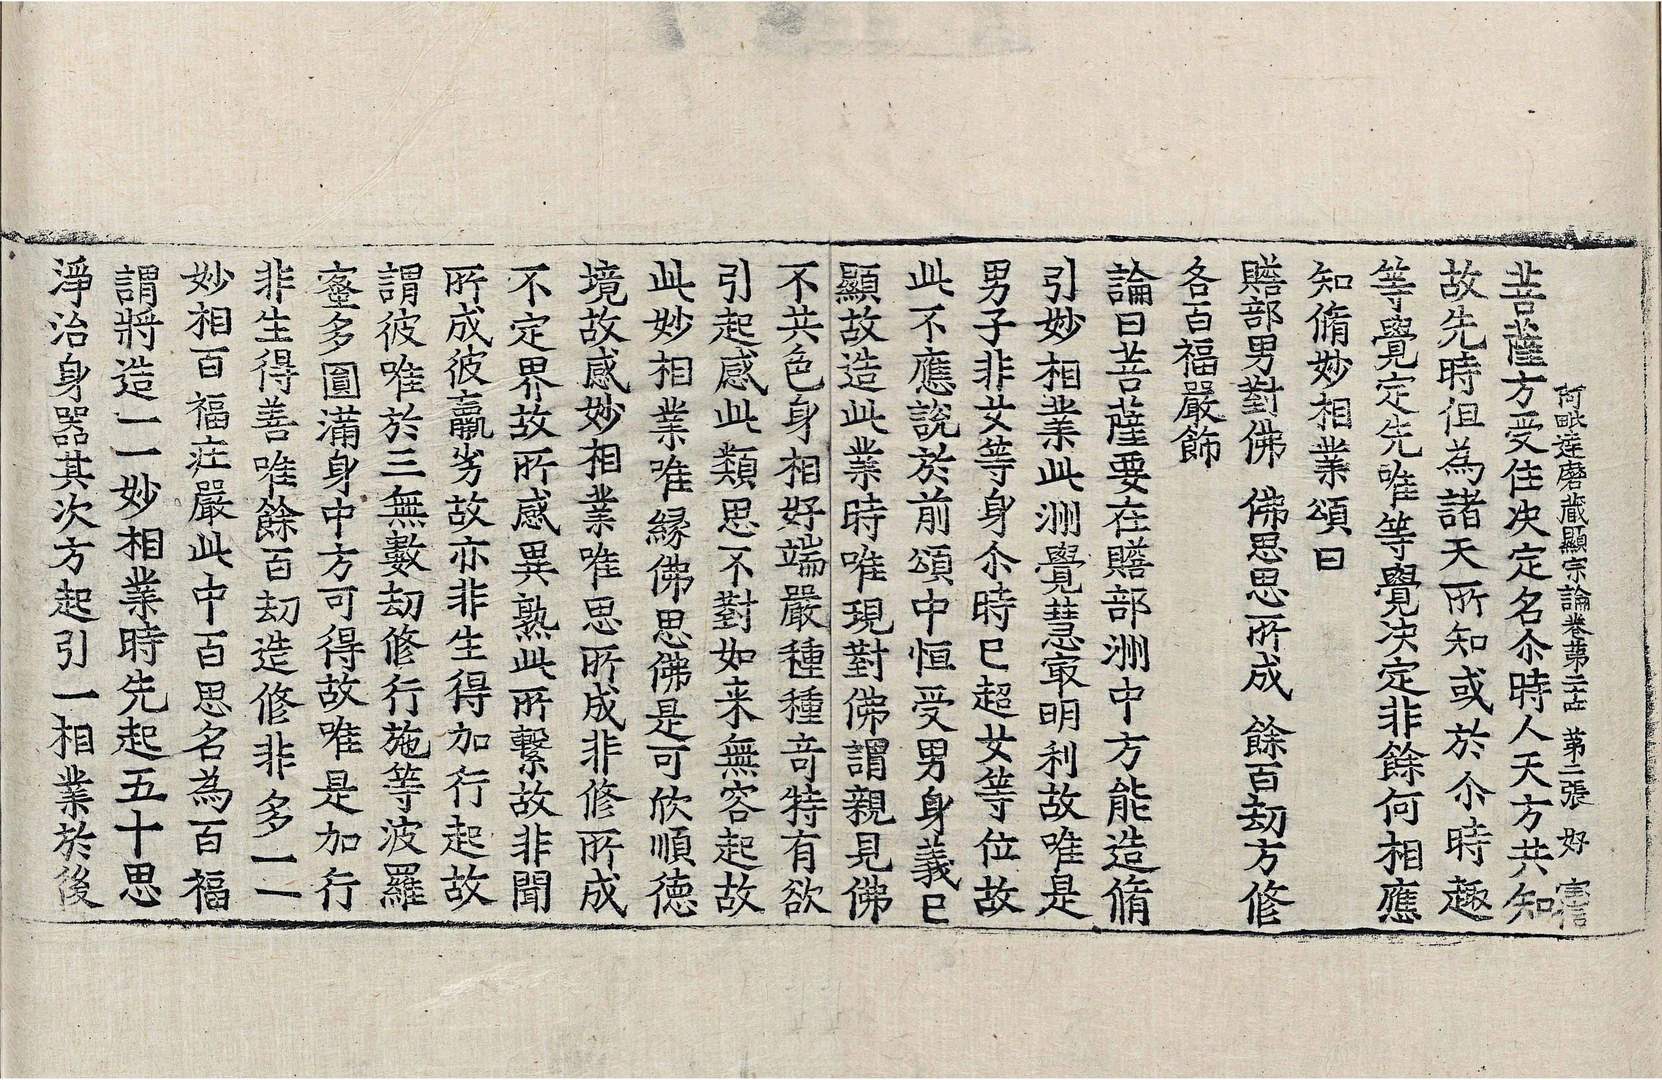 阿毗達磨藏顯宗論卷第二十四 第二張 好
菩薩方受住决定名尒時人天方共知
故先時但為諸天所知或於尒時趣
等覺定先唯等覺决定非餘何相應
知脩妙相業頌曰
贍部男對佛 佛思思所成 餘百劫方修
各百福嚴飾
論曰菩薩要在贍部洲中方能造脩
引妙相業此洲覺慧最明利故唯是
男子非女等身尒時已超女等位故
此不應說於前頌中恒受男身義已
顯故造此業時唯現對佛謂親見佛
不共色身相好端嚴種種奇特有欲
引起感此類思不對如来無容起故
此妙相業唯緣佛思佛是可欣順德
境故感妙相業唯思所成非修所成
不定界故所感異熟此所繫故非聞
所成彼羸劣故亦非生得加行起故
謂彼唯於三無數劫修行施等波羅
蜜多圓滿身中方可得故唯是加行
非生得善唯餘百劫造修非多一一
妙相百福莊嚴此中百思名為百福
謂將造一一妙相業時先起五十思
淨治身器其次方起引一相業於後